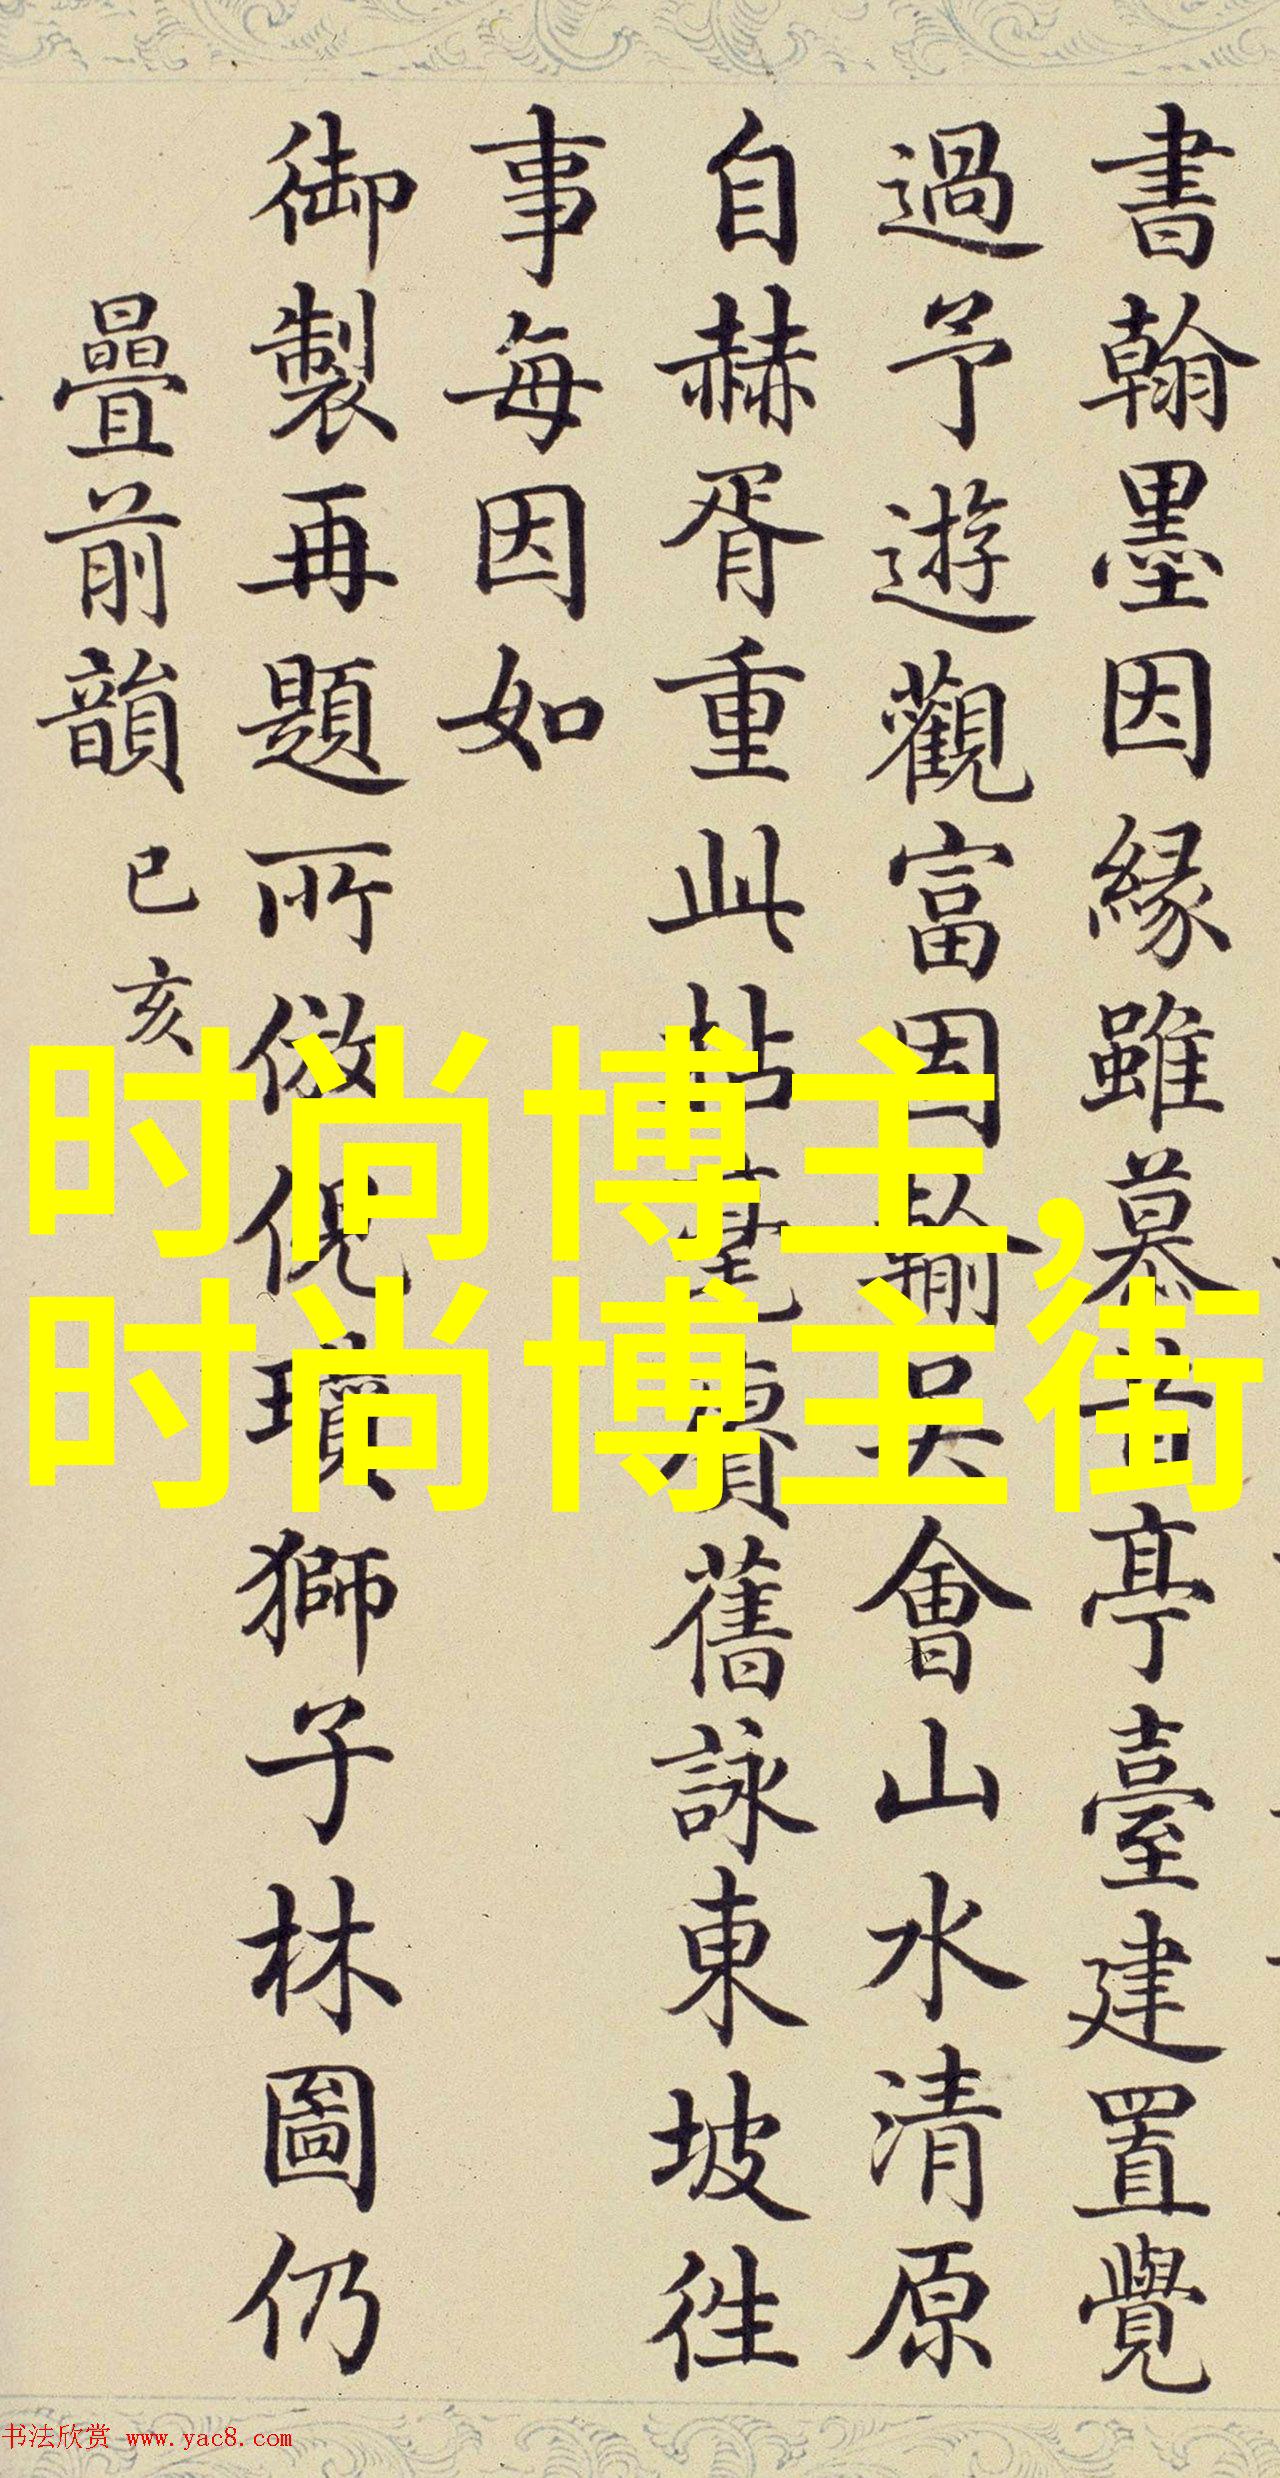 書翰墨因緣雖慕黃亭臺建置覺
過予遊觀富因輸吳會山水清原
自赫胥重此帖賡舊詠東坡徃
事每因如
御製再題所倣倪瓚獅子林圖仍
疊前韻 己亥
时尚博主,
时尚博主街
书法欣赏 www.yac8.com